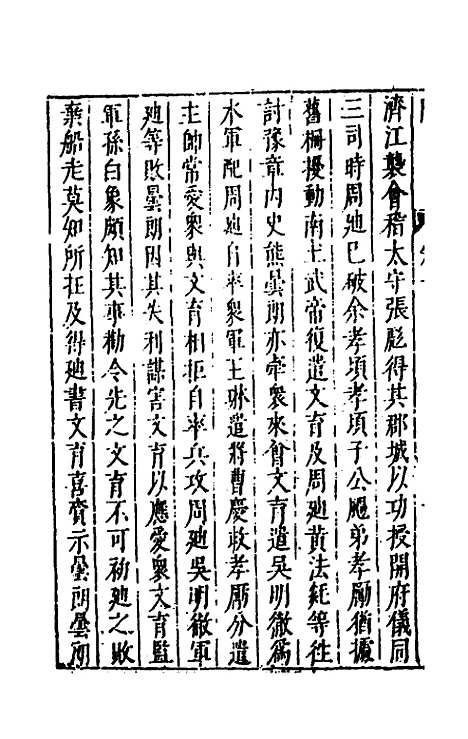 濟江襲會稽太守張彪得其郡城以功授開府儀同
三司時周廸已破余孝頃孝頃子公颺弟孝勵猶據
舊柵擾動南土武帝復遣文育及周廸黃法𣰰等往
討豫章內史熊曇朗亦率衆來會文育遣吳明徹爲
水軍配周廸自率衆軍王琳遣將曹慶救孝勵分遣
主帥常愛衆與文育相拒自率兵攻周廸吳明徹軍
廸等敗曇朗因其失利謀害文育以應愛衆文育監
軍孫白象頗知其事勸令先之文育不可初廸之敗
棄船走莫知所在及得廸書文育喜齎示曇朗曇朗